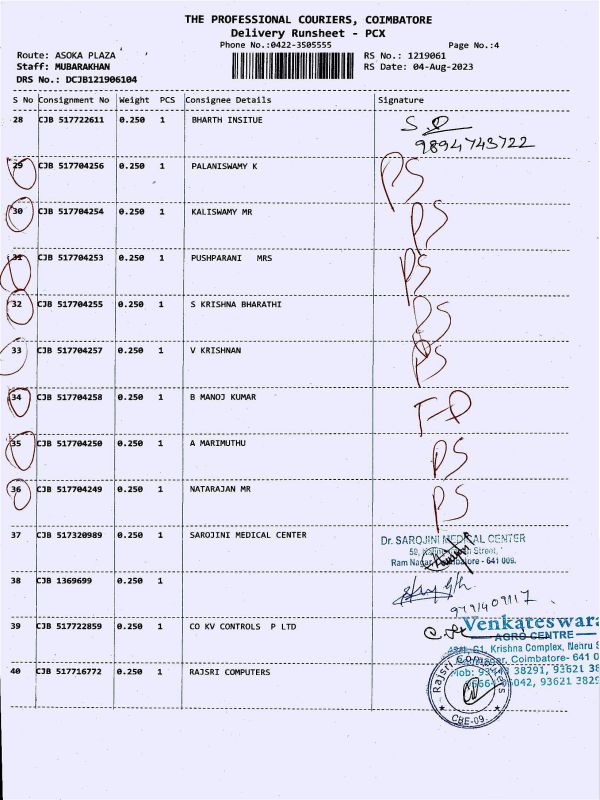 THE PROFESSIONAL COURIERS, COIMBATORE
Delivery Runsheet - PCX
Phone No.:0422-3505555
Page No.:4
Route: ASOKA PLAZA
RS No.: 1219061
Staff: MUBARAKHAN
RS Date: 04-Aug-2023
DRS No.: DCJB121906104
S No Consignment No Weight PCS Consignee Details Signature
28 CJB 517722611 0.250 1 BHARTH INSITUE
9894743722
29 CJB 517704256 0.250 1 PALANISWAMY K PS
30 CJB 517704254 0.250 1 KALISWAMY MR PS
31 CJB 517704253 0.250 1 PUSHPARANI MRS PS
32 CJB 517704255 0.250 1 S KRISHNA BHARATHI PS
33 CJB 517704257 0.250 1 V KRISHNAN PS
34 CJB 517704258 0.250 1 B MANOJ KUMAR
35 CJB 517704250 0.250 1 A MARIMUTHU PS
36 CJB 517704249 0.250 1 NATARAJAN MR PS
37 CJB 517320989 0.250 1 SAROJINI MEDICAL CENTER
Dr. SAROJINI MEDICAL CENTER
Street,
Ram Nagar, Coimbatore - 641 009.
38 CJB 1369699 0.250 1
39 CJB 517722859 0.250 1 CO KV CONTROLS P LTD
Venkateswara
AGRO CENTRE
Krishna Complex, Nehru S
Coimbatore- 641 0
Mob: 38291, 93621 38
042, 93621 3829
40 CJB 517716772 0.250 1 RAJSRI COMPUTERS
Rajsri Computers
CBE-09.